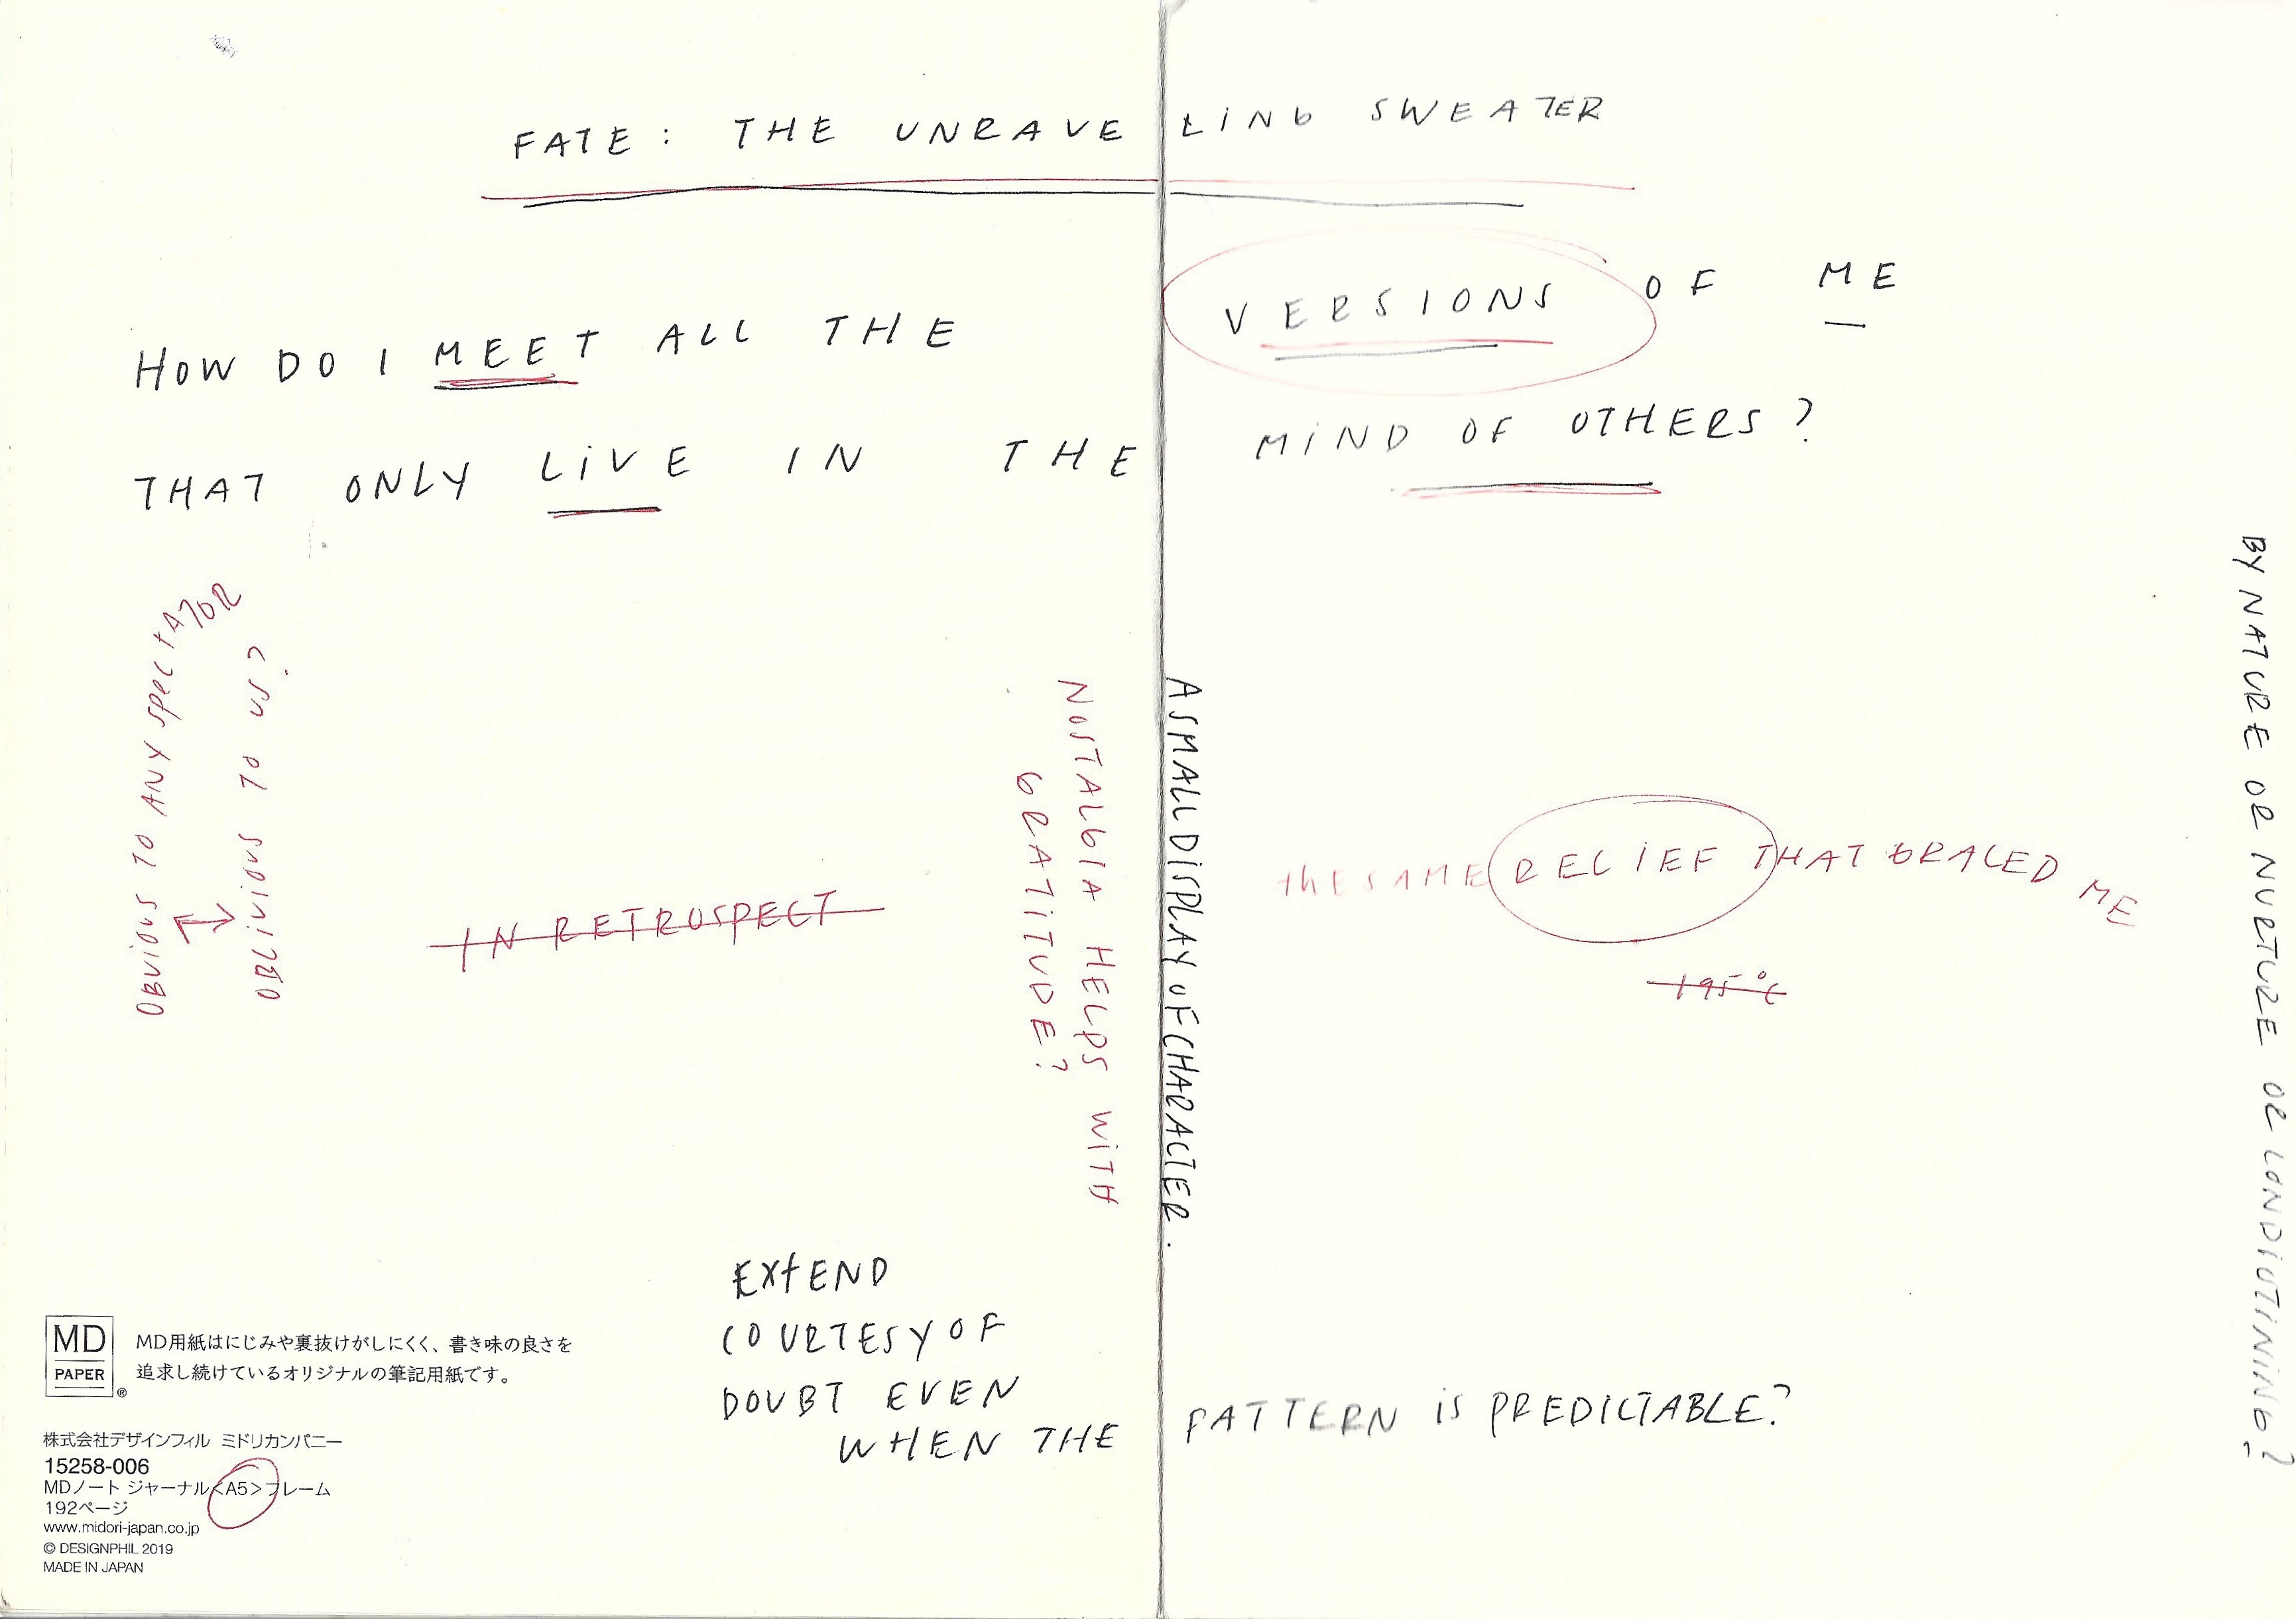 FATE: THE UNRAVELING SWEATER
HOW DO I MEET ALL THE VERSIONS OF ME
THAT ONLY LIVE IN THE MIND OF OTHERS?
OBVIOUS TO ANY SPECTATOR
OBLIVIOUS TO US?
IN RETROSPECT
NOSTALGIA HELPS WITH
GRATITUDE?
A SMALL DISPLAY OF CHARACTER.
THE SAME RELIEF THAT GRACED ME
195°C
BY NATURE OR NURTURE OR CONDIOTINING?
EXTEND
COURTESY OF
DOUBT EVEN
WHEN THE PATTERN IS PREDICTABLE?
MD
PAPER
®
MD用紙はにじみや裏抜けがしにくく、書き味の良さを
追求し続けているオリジナルの筆記用紙です。
株式会社デザインフィル ミドリカンパニー
15258-006
MDノート ジャーナル<A5>フレーム
192ページ
www.midori-japan.co.jp
© DESIGNPHIL 2019
MADE IN JAPAN